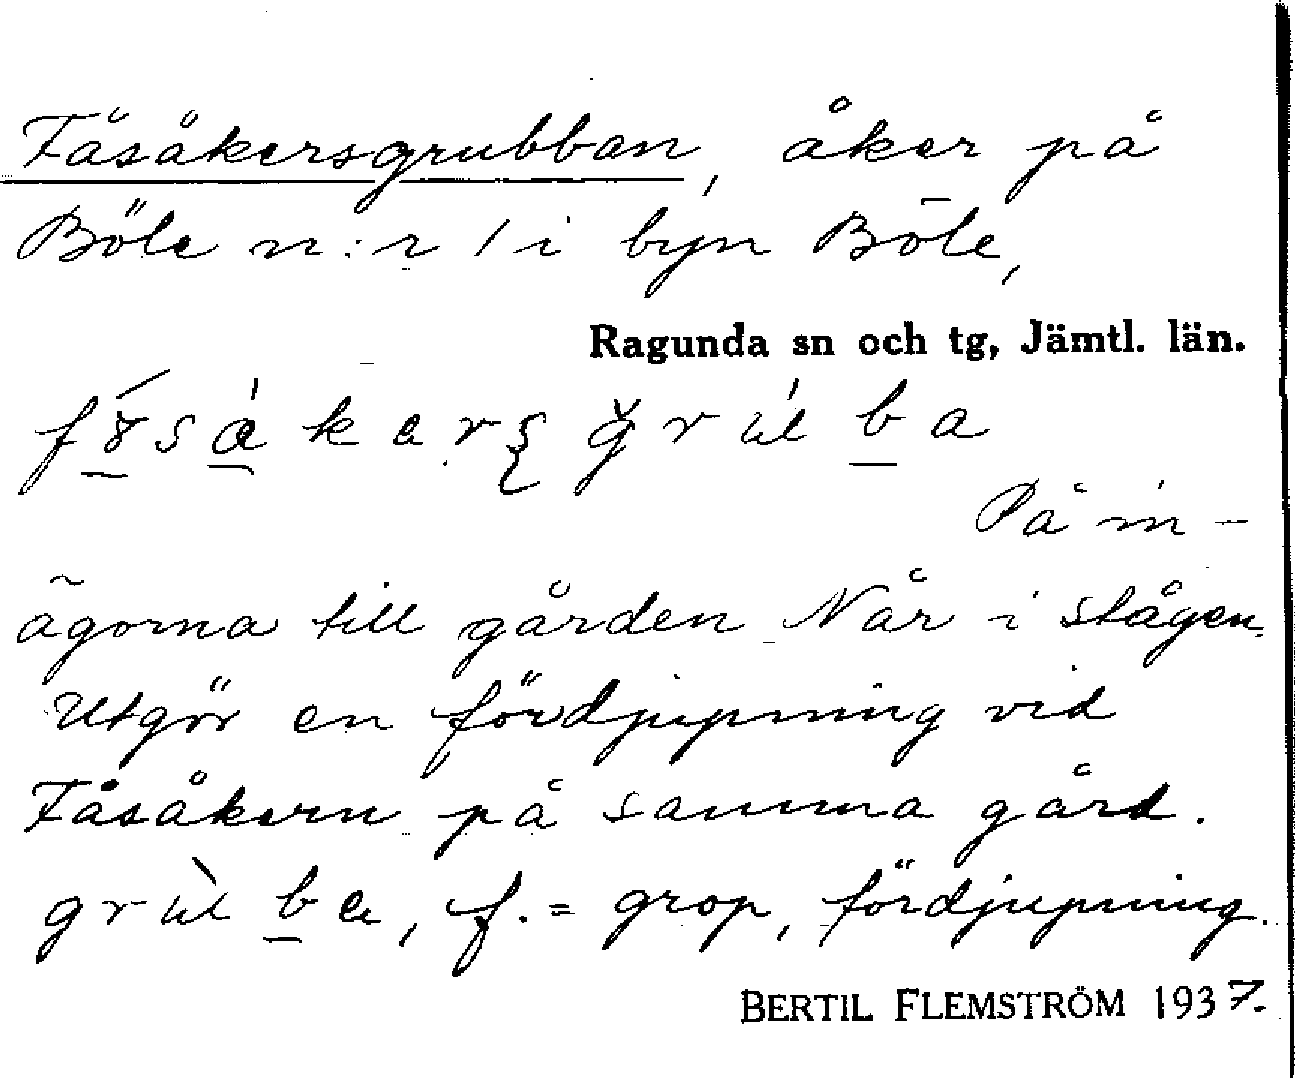 Fåsåkersgrubban, åker på
Böle n:r 1 i byn Böle,
Ragunda sn och tg, Jämtl. län.
På in-
ägorna till gården När i stågen.
Utgör en fördjupning vid
Fåsåkern på samma gård.
f. = grop, fördjupning.
BERTIL FLEMSTRÖM 1937.